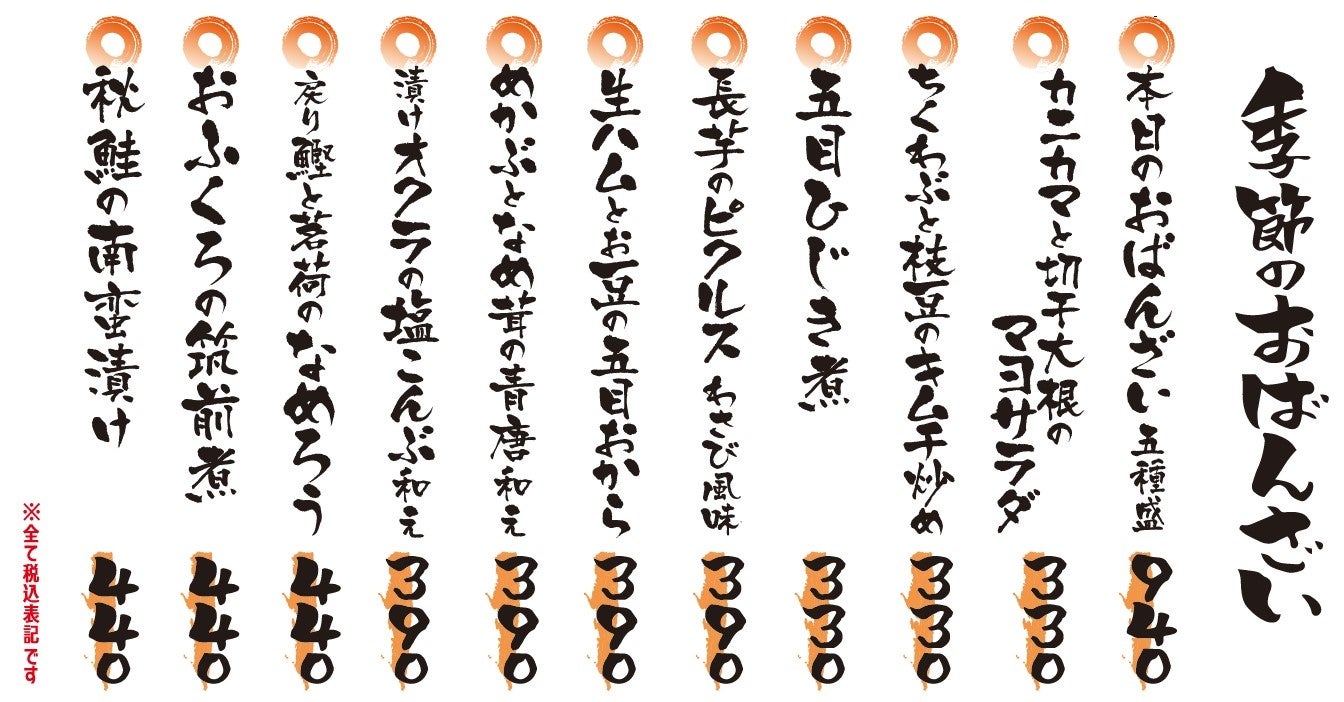 季節のおばんざい
本日のおばんざい 五種盛
940
カニカマと切干大根の
マヨサラダ
330
ちくわぶと枝豆のキムチ炒め
330
五目ひじき煮
330
長芋のピクルス わさび風味
390
生ハムとお豆の五目おから
390
めかぶとなめ茸の青唐和え
390
漬けオクラの塩こんぶ和え
390
戻り鰹と茗荷のなめろう
440
おふくろの筑前煮
440
秋鮭の南蛮漬け
440
※全て税込表記です